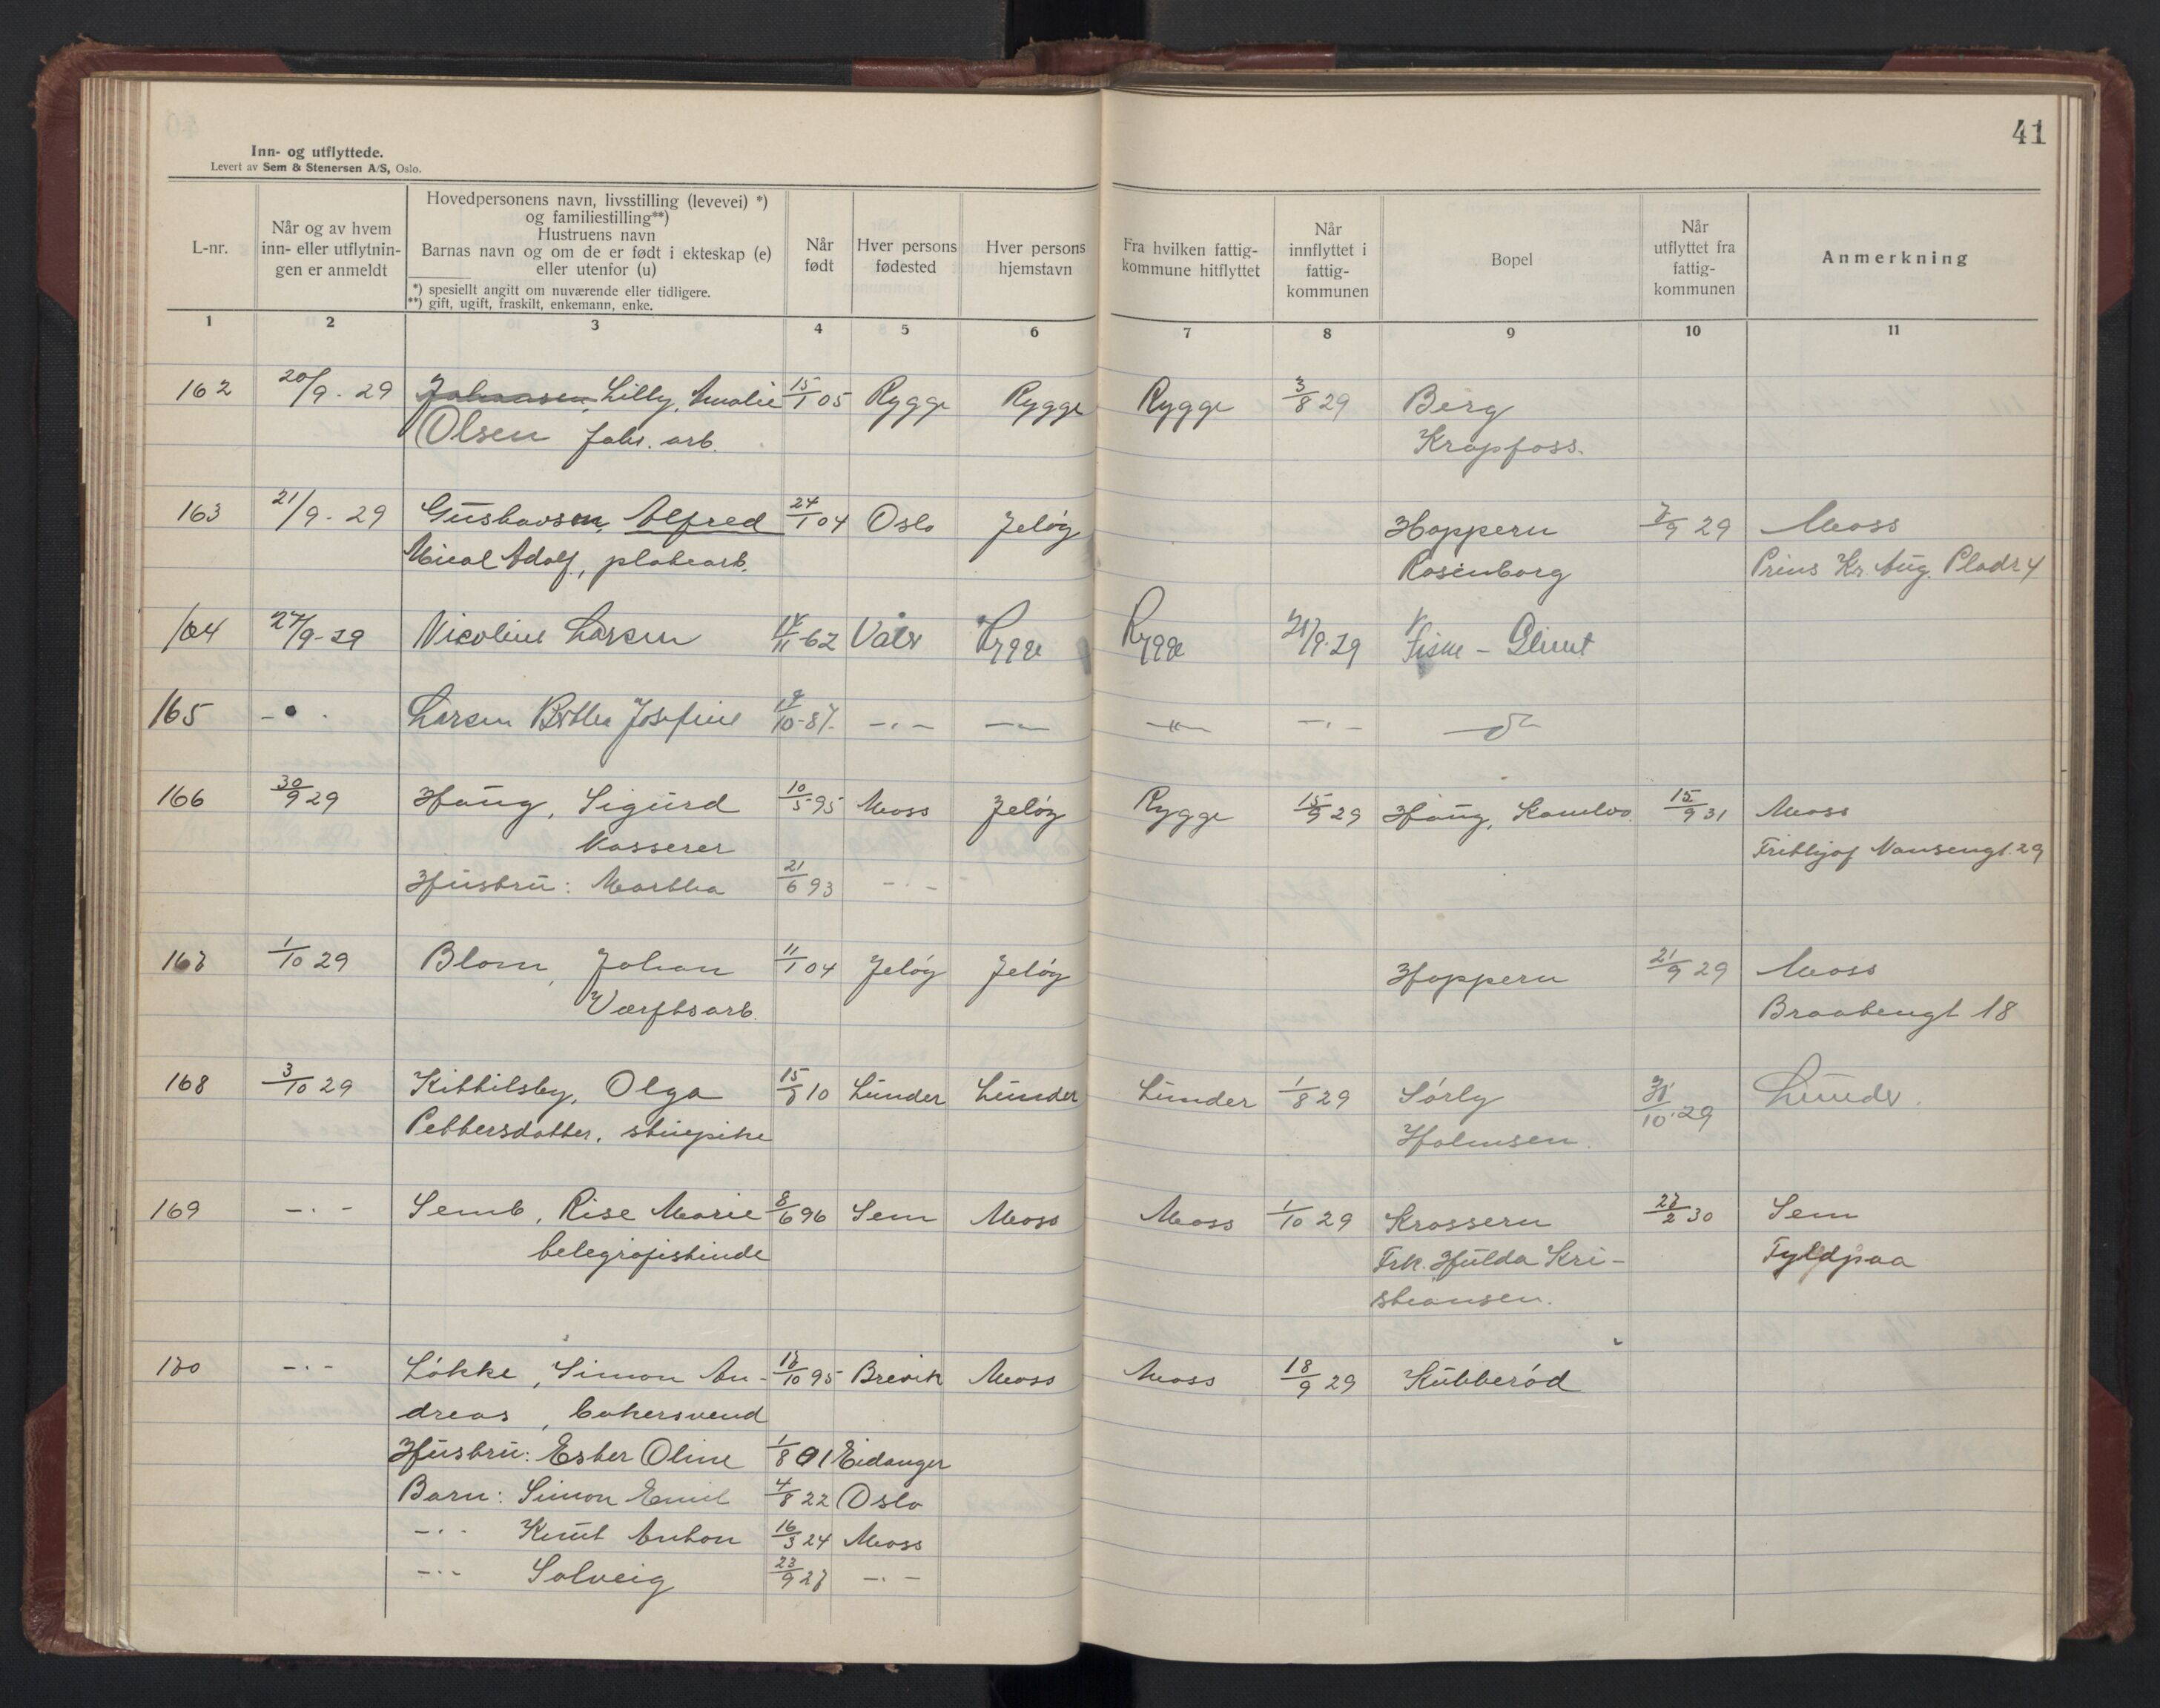 41
Inn- og utflyttede.
Levert av Sem & Stenersen A/S, Oslo.
L-nr.
Når og av hvem
inn- eller utflytnin-
gen er anmeldt
Hovedpersonens navn, livsstilling (levevei) *)
og familiestilling**)
Hustruens navn
Barnas navn og om de er født i ekteskap (e)
eller utenfor (u)
*) spesiellt angitt om nuværende eller tidligere.
**) gift, ugift, fraskilt, enkemann, enke.
Når
født
Hver persons
fødested
Hver persons
hjemstavn
Fra hvilken fattig-
kommune hitflyttet
Når
innflyttet i
fattig-
kommunen
Bopel
Når
utflyttet fra
fattig-
kommunen
Anmerkning
1 2 3 4 5 6 7 8 9 10 11
162 20/9-29 Johansen, Lilly, Amalie 15/1 05 Rygge Rygge Rygge 3/8 29 Berg
Olsen fabr. arb. Krapfoss.
163 21/9-29 Gustavsen, Alfred 24/1 04 Oslo Jeløy Hoppern 7/9 29 Moss
Mical Adolf, platearb. Rosenborg Prins Kr. Aug. Plads 4
164 27/9-29 Nicoline Larsen Våler Rygge Rygge Glimt
165 - . Larsen Josefine -.- - -"- -.- do
166 30/9 29 Haug, Sigurd 10/5 95 Moss Jeløy Rygge 15/9 29 Haug, Kambo. 15/9 31 Moss
Kasserer Frithjof Nansengt. 29
Hustru: Martha 21/6 93 -.-
167 1/10 29 Blom, Johan 11/1 04 Jeløy Jeløy Hoppern 21/9 29 Moss
Værftsarb. Braatengt 18
168 3/10 29 Kittilsby, Olga 15/7 10 Lunder Lunder Lunder 1/8 29 Sørby 31/10 29 Lunder.
Pettersdatter, stuepike Holmsen.
169 -.- Semb, Rise Marie 8/6 96 Sem Moss Moss 1/10 29 Krossern 27/2 30 Sem
telegrafistinde Frk. Hulda Kri- Fyldpaa
stiansen.
170 -.- Løkke, Simon An- 17/10 95 Brevik Moss Moss 18/9 29 Kubberød
dreas, bakersvend
Hustru: Ester Oline 1/8 01 Eidanger
Barn: Simon Emil 4/8 22 Oslo
-.- Knut Anton 16/3 24 Moss
-.- Solveig 23/9 27 -.-